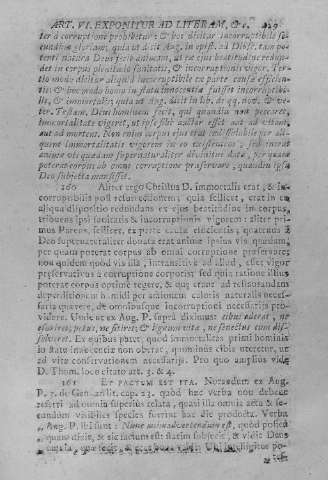 ART. VI. EXPONITUR AD LITERAM, &c. 229
ter à corruptione prohibetur: & hoc dicitur incorruptibile se-
cundùm gloriam, quia ut dicit Aug. in epist. ad Diosc. tam po-
tenti natura Deus fecit animam, ut ex ejus beatitudine redun-
det in corpus plenitudo sanitatis, & incorruptionis vigor. Ter-
tio modo dicitur aliquid incorruptibile ex parte causæ efficien-
tis: & hoc modo homo in statu innocentiæ fuisset incorruptibi-
lis, & immortalis; quia ut Aug. dicit in lib. de qq. nov. & ve-
ter. Testam. Deus hominem fecit, qui quamdiu non peccaret,
immortalitate vigeret, ut ipse sibi auctor esset aut ad vitam,
aut ad mortem. Non enim corpus ejus erat indissolubile per ali-
quem immortalitatis vigorem in eo existentem; sed inerat
animæ vis quædam supernaturaliter divinitus data, per quam
poterat corpus ab omni corruptione præservare, quamdiu ipsa
Deo subjecta mansisset.
160 Aliter ergo Christus D. immortalis erat, & in-
corruptibilis post resurrectionem; quia scilicet, erat in eo
aliqua dispositio redundans ex ejus beatitudine in corpus,
tribuens ipsi sanitatis & incorruptionis vigorem: aliter pri-
mus Parens, scilicet, ex parte causæ efficientis; quatenus à
Deo supernaturaliter donata erat animæ ipsius vis quædam,
per quam poterat corpus ab omni corruptione præservare;
non quidem quod vis illa, intransitivè ad aliud, esset vigor
præservativus à corruptione corporis: sed quia ratione illius
poterat corpus optimè regere, & quæ erant ad restaurandam
deperditionem humidi per actionem caloris naturalis neces-
saria quærere, & omnibusque incorruptioni necessariis pro-
videre. Unde ex Aug. P. suprà diximus: cibus aderat, ne
esuriret; potus, ne sitiret; & lignum vitæ, ne senectus eum dis-
solveret. Ex quibus patet, quod immortalitati primi hominis
in statu innocentiæ non obstat, quominus cibis uteretur, ut
ad vitæ conservationem necessariis. Pro quo amplius vide
D. Thom. loco citato art. 3. & 4.
161 ET FACTUM EST ITA. Notandum ex Aug.
P. 2. de Gen. ad lit. cap. 23. quod hæc verba non debent
referri ad omnia superius relata, quasi illa omnia acta se-
cundùm visibiles species fuerint hac die producta. Verba
Aug. P. ibi sunt: Nunc animadvertendum est, quod posteà
quàm dixit, & sic factum est: statim subjecit, & vidit Deus
omnia, quæ fecit, &